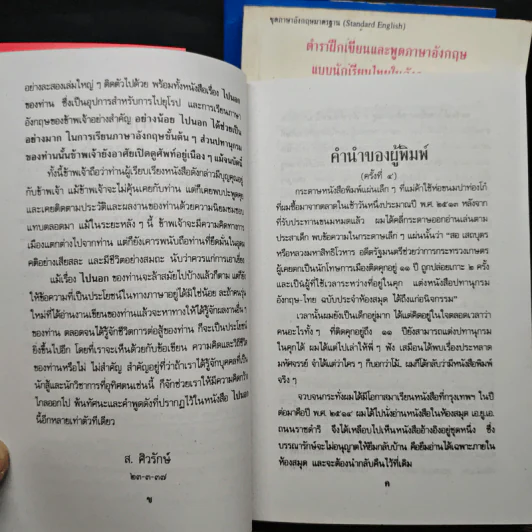 ชุดภาษาอังกฤษมาตรฐาน (Standard English)
ตำราฝึกเขียนและพูดภาษาอังกฤษ
แบบนักเรียนไทยใน
อย่างละสองเล่มใหญ่ ๆ ติดตัวไปด้วย พร้อมทั้งหนังสือเรื่อง ไปนอก
ของท่าน ซึ่งเป็นอุปการสำหรับการไปยุโรป และการเรียนภาษา
อังกฤษของข้าพเจ้าอย่างสำคัญ อย่างน้อย ไปนอก ได้ช่วยเป็น
อย่างมาก ในการเรียนภาษาอังกฤษขั้นต้น ๆ ส่วนปทานุกรม
ของท่านนั้นข้าพเจ้ายังอาศัยเปิดดูศัพท์อยู่เนือง ๆ แม้จนบัดนี้
ทั้งนี้ข้าพเจ้าถือว่าท่านผู้เรียบเรียงหนังสือดังกล่าวมีบุญคุณอยู่
กับข้าพเจ้า แม้ข้าพเจ้าจะไม่คุ้นเคยกับท่าน แต่ก็เคยพบปะพูดคุย
และเคยติดตามประวัติและผลงานของท่านด้วยความนิยมชมชอบ
แทบตลอดมา แม้ในระยะหลัง ๆ นี้ ข้าพเจ้าจะมีความคิดทางการ
เมืองแตกต่างไปจากท่าน แต่ก็ยังเคารพนับถือท่านที่ยึดมั่นในอุดม
คติอย่างเสียสละ และมีชีวิตอย่างสมถะ นับว่าควรแก่การเอาเยี่ยง
แม้เรื่อง ไปนอก ของท่าน จะล้าสมัยไปบ้างแล้วก็ตาม แต่ก็ยัง
ให้ข้อความที่เป็นประโยชน์ในทางภาษาอยู่ได้มิใช่น้อย ละถ้าคนรุ่น
ใหม่ที่ได้อ่านงานเขียนของท่านแล้วจะหาทางให้ได้รู้จักผลงานอื่น ๆ
ของท่าน ตลอดจนได้รู้จักชีวิตการต่อสู้ของท่าน ก็จะเป็นประโยชน์
ยิ่งขึ้นไปอีก โดยที่เราจะเห็นด้วยกับข้อเขียน ความคิดและวิถีชีวิต
ของท่านหรือไม่ ไม่สำคัญ สำคัญอยู่ที่ว่าถ้าเราได้รู้จักบุคคลที่เป็น
นักสู้และนักวิชาการที่อุทิศตนเช่นนี้ ก็จักช่วยเราให้มีความคิดกว้าง
ไกลออกไป พ้นทัศนะและคำพูดดังที่ปรากฏไว้ในหนังสือ ไปนอก
นี้อีกหลายเท่าตัวทีเดียว
ส. ศิวรักษ์
๒๓-๓-๓๗
ข
คำนำของผู้พิมพ์
(ครั้งที่ ๔)
กระดาษหนังสือพิมพ์แผ่นเล็ก ๆ ที่แม่ค้าใช้ห่อขนมปาท่องโก๋
ที่ผมซื้อมาจากตลาดในเช้าวันหนึ่งประมาณปี พ.ศ. ๒๕๑๓ หลังจาก
ที่รับประทานขนมหมดแล้ว ผมได้คลี่กระดาษออกอ่านเล่นตาม
ประสาเด็ก พบข้อความในกระดาษเล็ก ๆ แผ่นนั้นว่า “สอ เสถบุตร
หรือหลวงมหาสิทธิโวหาร อดีตรัฐมนตรีช่วยว่าการกระทรวงเกษตร
ผู้เคยตกเป็นนักโทษการเมืองติดคุกอยู่ ๑๑ ปี ถูกปล่อยเกาะ ๒ ครั้ง
และเป็นผู้ที่ใช้เวลาระหว่างที่อยู่ในคุก แต่งหนังสือปทานุกรม
อังกฤษ-ไทย ฉบับประจำห้องสมุด ได้ถึงแก่อนิจกรรม”
เวลานั้นผมยังเป็นเด็กอยู่มาก ได้แต่คิดอยู่ในใจตลอดเวลาว่า
คนอะไรทั้ง ๆ ที่ติดคุกอยู่ถึง ๑๑ ปียังสามารถแต่งปทานุกรม
ในคุกได้ ผมได้แต่ไปเล่าให้พี่ ๆ ฟัง เสมือนได้พบเรื่องประหลาด
มหัศจรรย์ จำได้แต่ว่าใคร ๆ ก็บอกว่าโม้ ผมก็ได้กลับว่ามีหนังสือพิมพ์
จริง ๆ
จวบจนกระทั่งผมได้มีโอกาสมาเรียนหนังสือที่กรุงเทพฯ ในปี
ต่อมาคือปี พ.ศ. ๒๕๑๔ ผมได้ไปนั่งอ่านหนังสือในห้องสมุด เอ.ยู.เอ.
ถนนราชดำริ จึงได้เหลือบไปเห็นหนังสืออ้างอิงอยู่ชุดหนึ่ง ซึ่ง
บรรณารักษ์จะไม่อนุญาตให้ยืมกลับบ้าน คือยืมอ่านได้เฉพาะภายใน
ห้องสมุด และจะต้องนำกลับคืนไว้ที่เดิม
ค